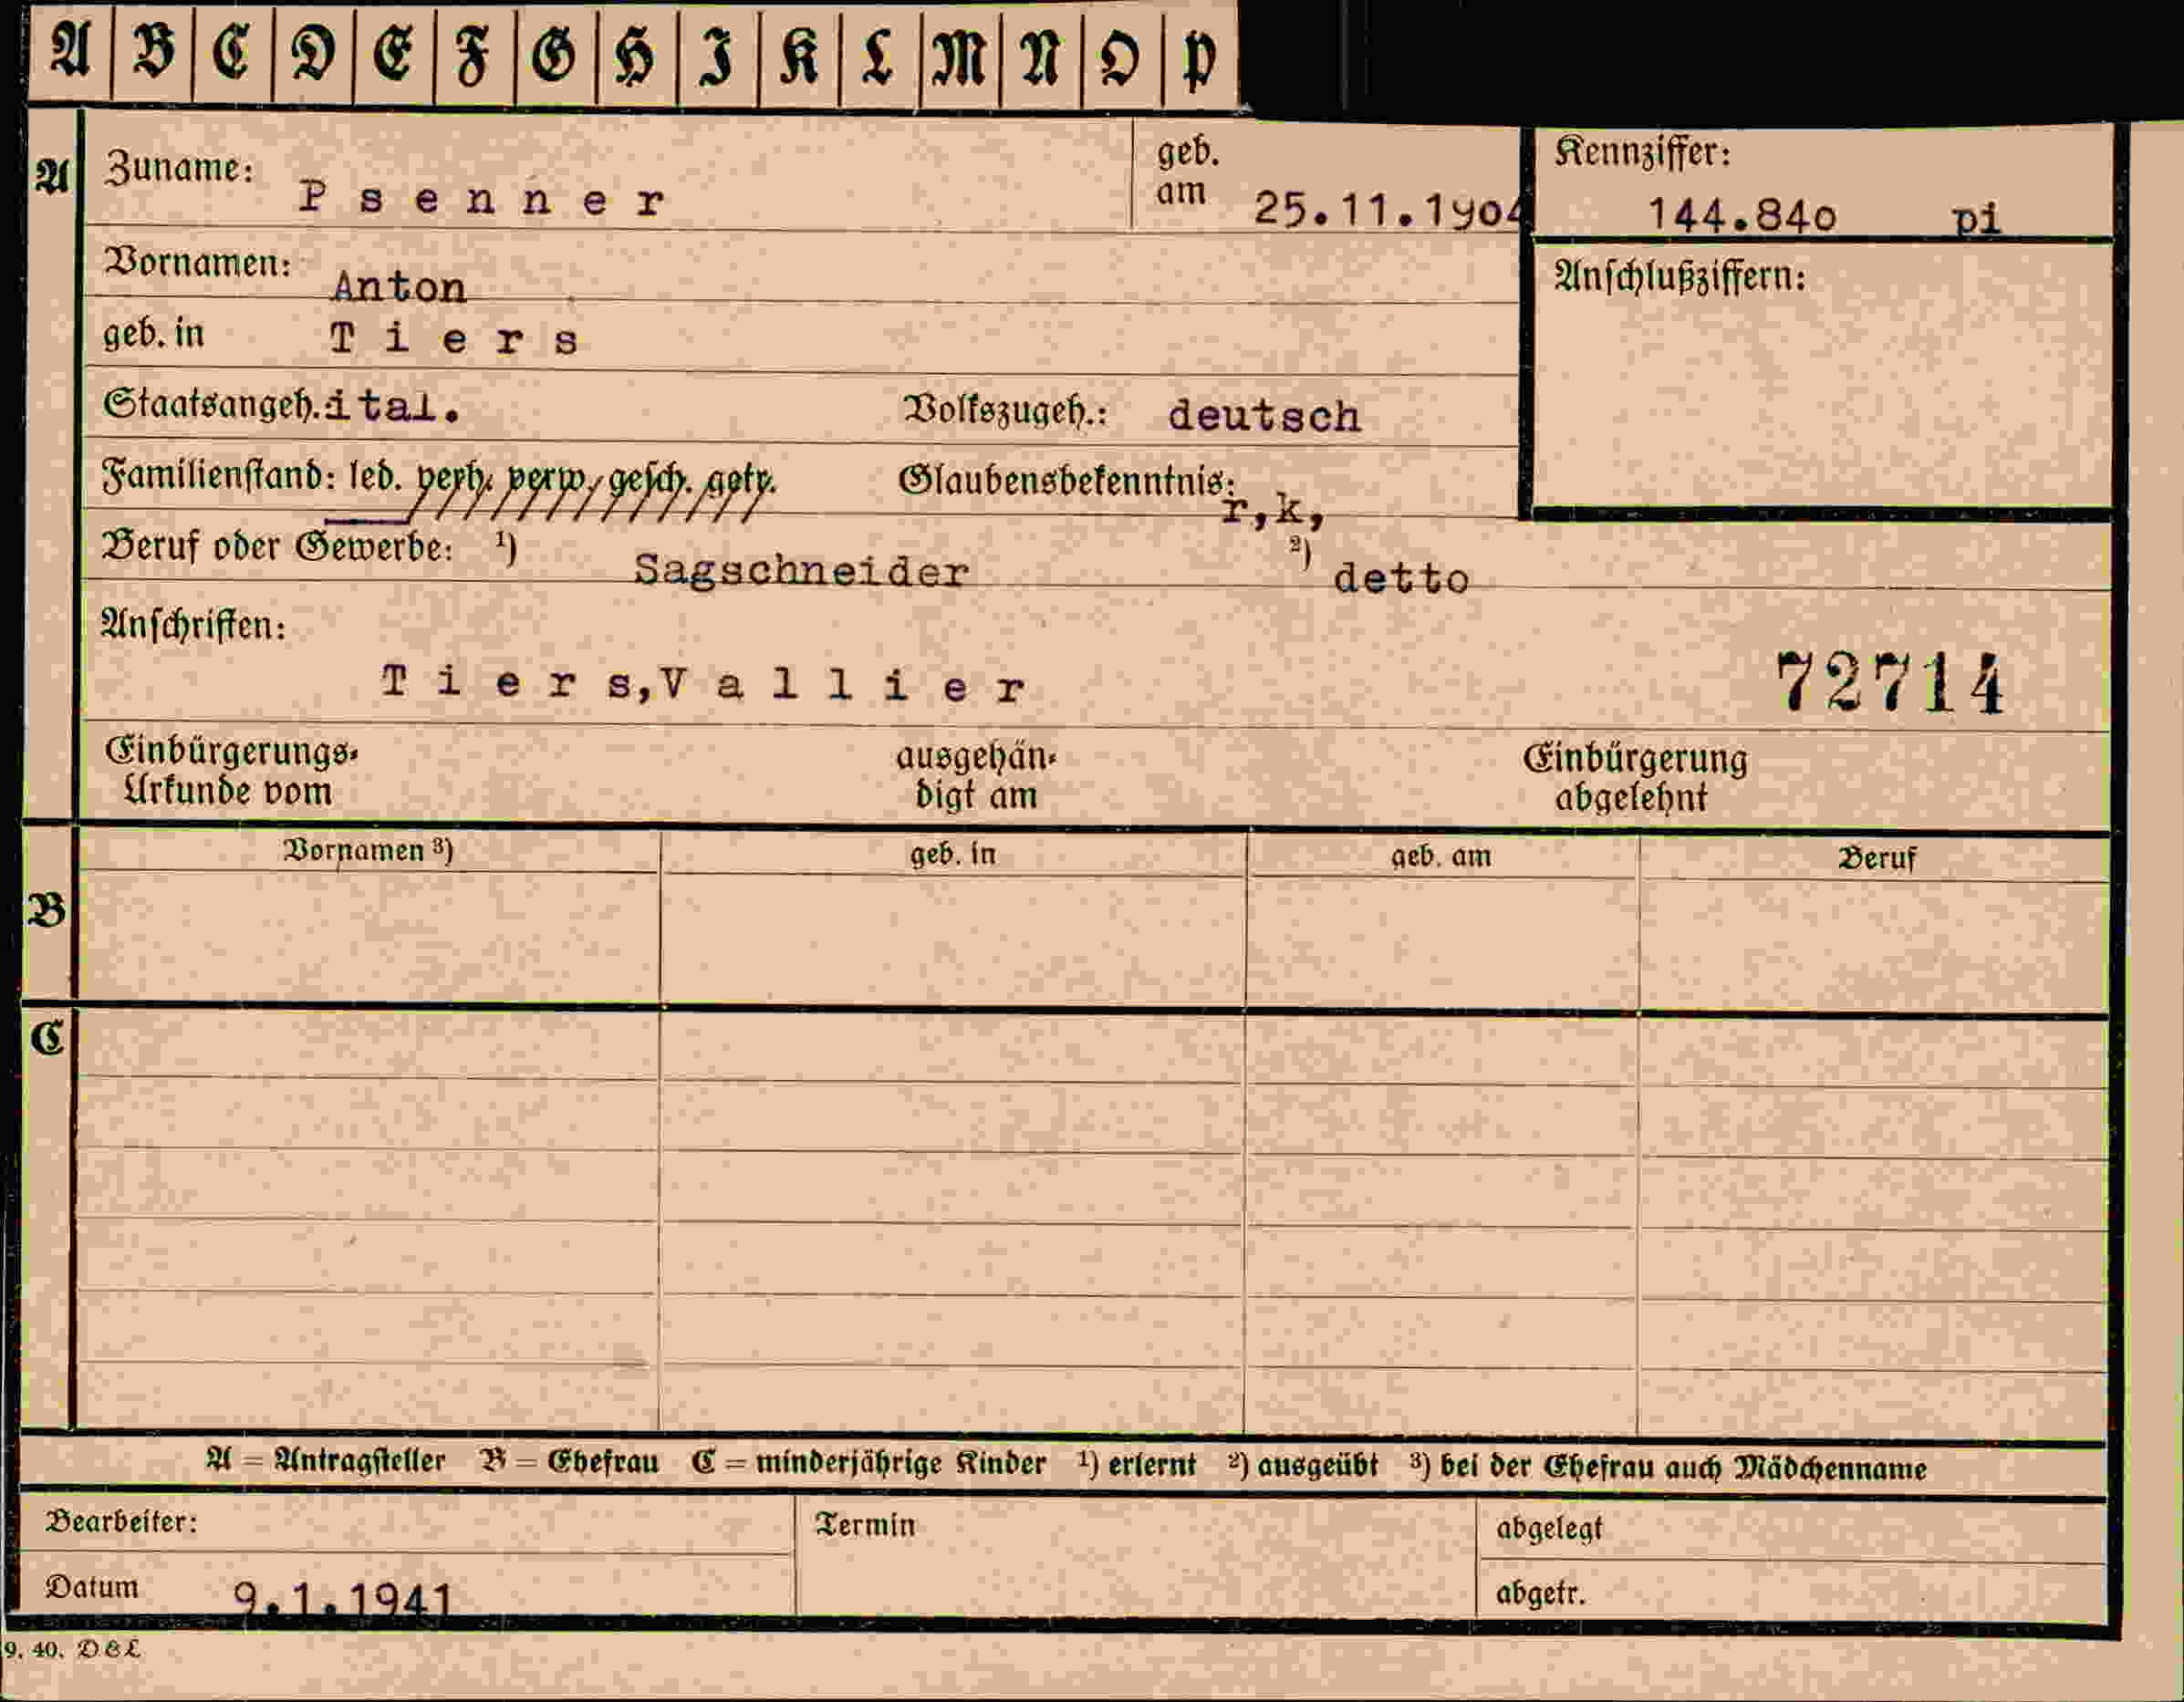 A B C D E F G H I K L M N O P
A Zuname: Psenner geb. am 25.11.1904 Kennziffer: 144.840 pi
Vornamen: Anton Anschlußziffern:
geb. in Tiers
Staatsangeh. ital. Volkszugeh.: deutsch
Familienstand: led. verh. verw. gesch. getr. Glaubensbekenntnis: r,k,
Beruf oder Gewerbe: ¹) Sagschneider ²) detto
Anschriften:
Tiers,Vallier 72714
Einbürgerungs- ausgehän- Einbürgerung
Urkunde vom digt am abgelehnt
Vornamen ³) geb. in geb. am Beruf
B
C
A = Antragsteller B = Ehefrau C = minderjährige Kinder ¹) erlernt ²) ausgeübt ³) bei der Ehefrau auch Mädchenname
Bearbeiter: Termin abgelegt
Datum 9.1.1941 abgetr.
9. 40. DEL